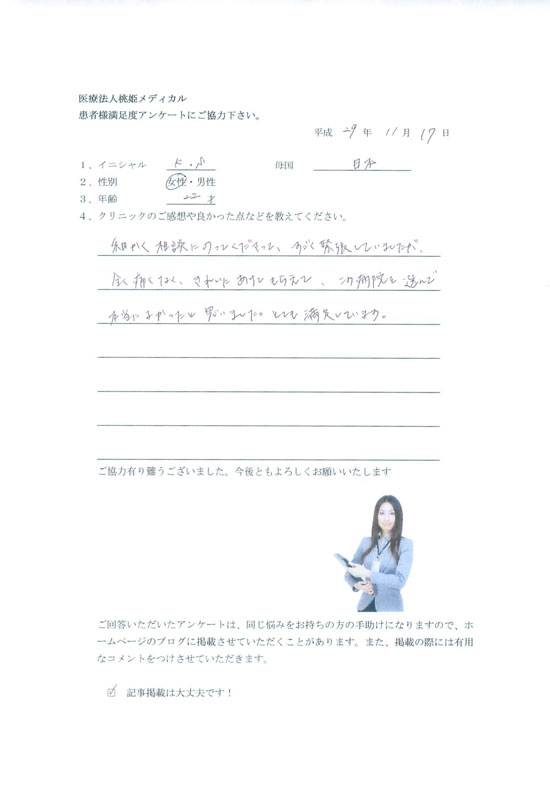 医療法人桃姫メディカル
患者様満足度アンケートにご協力下さい。
平成 29 年 11 月 17 日
1、イニシャル K.S 母国 日本
2、性別 女性・男性
3、年齢 22 才
4、クリニックのご感想や良かった点などを教えてください。
細かく相談にのってくださって、すごく緊張していましたが、
全く痛くなく、きれいにあけてもらえて、この病院を選んで
本当によかったと思いました。とても満足しています。
ご協力有り難うございました。今後ともよろしくお願いいたします
ご回答いただいたアンケートは、同じ悩みをお持ちの方の手助けになりますので、ホ
ームページのブログに掲載させていただくことがあります。また、掲載の際には有用
なコメントをつけさせていただきます。
☑ 記事掲載は大丈夫です！